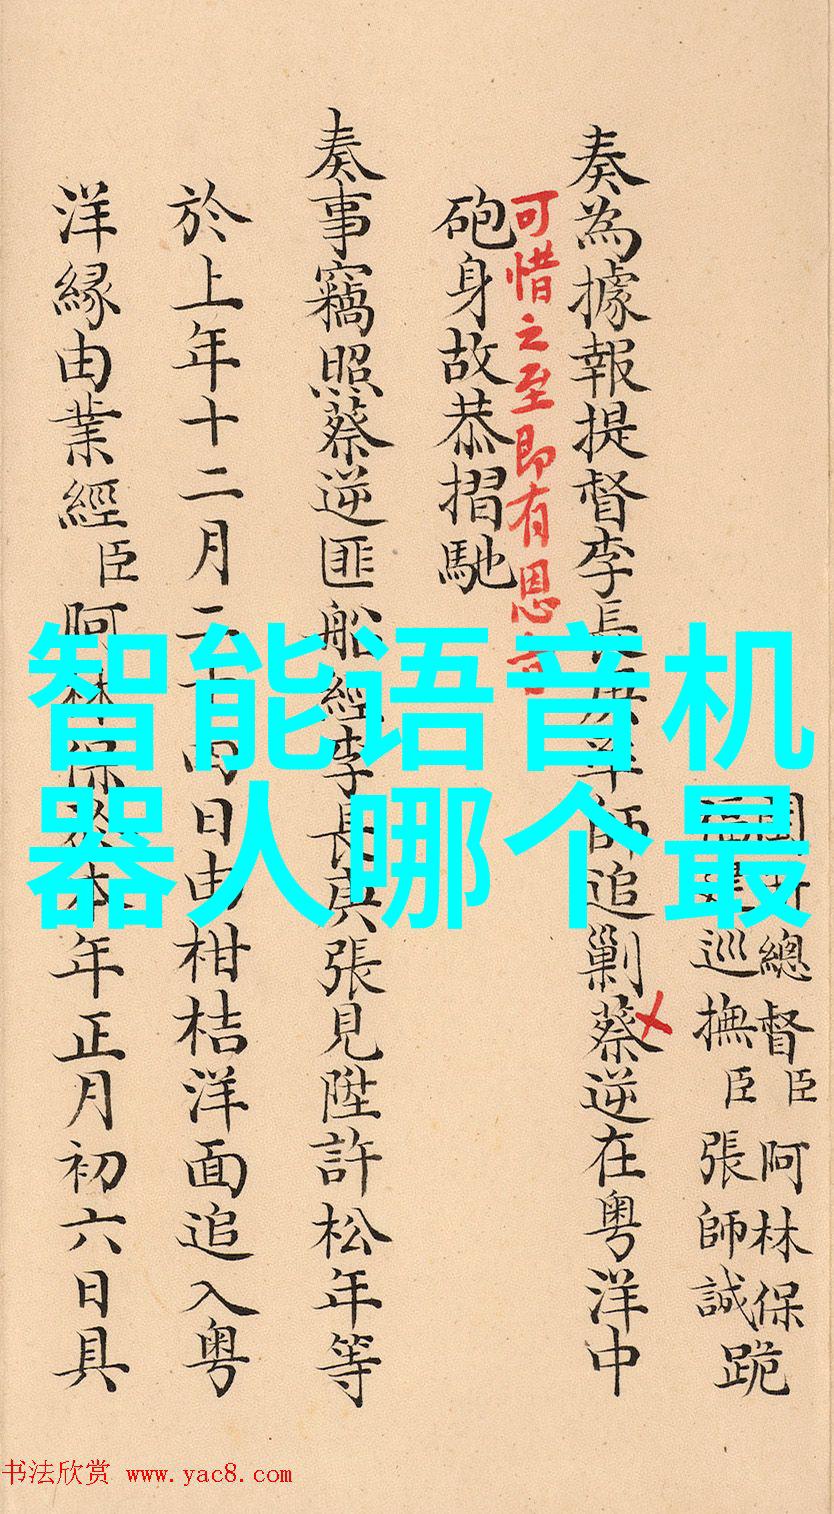 閩浙總督臣阿林保
福建巡撫臣張師誠跪
奏為據報提督李長庚舟師追剿蔡逆在粤洋中
可惜之至即有恩旨
砲身故恭摺馳
奏事竊照蔡逆匪船經李長庚張見陞許松年等
於上年十二月二十四日由柑桔洋面追入粤
洋緣由業經臣阿林保於本年正月初六日具
智能语音机
器人哪个最
书法欣赏 www.yac8.com